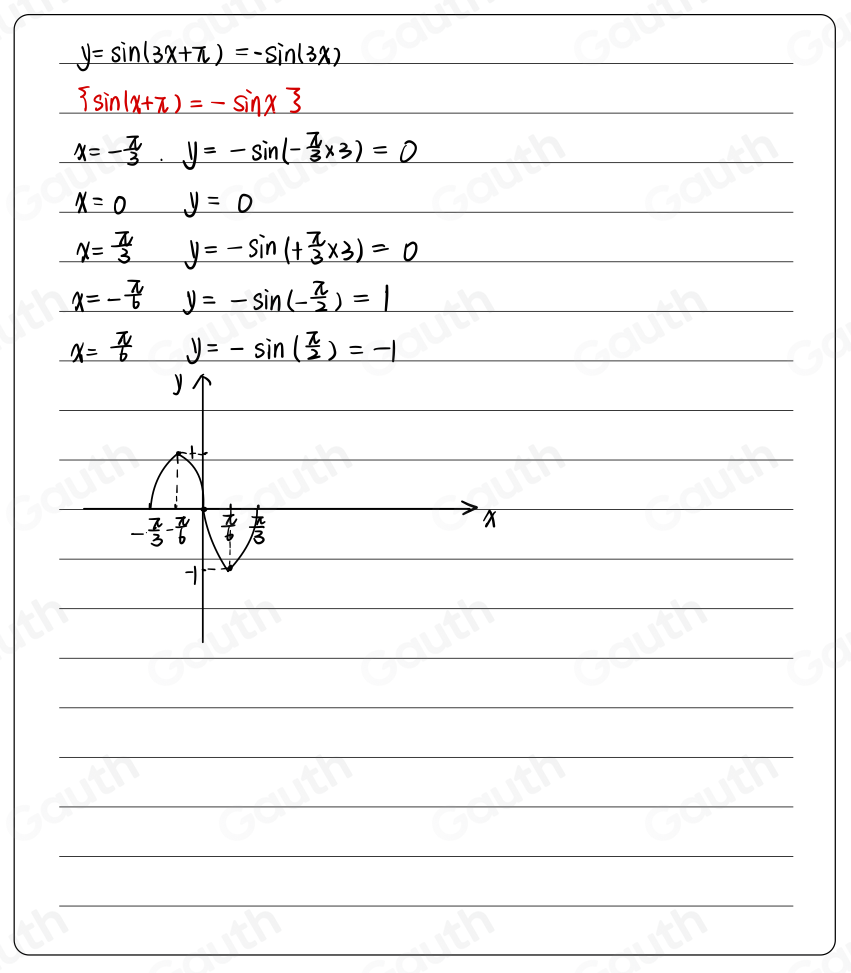 y = sin(3x+π) = -sin(3x)
{sin(x+π) = - sinx}
x = -π/3 . y = - sin(-π/3 ×3) = 0
x = 0 y = 0
x = π/3 y = - sin(+π/3 ×3) = 0
x = -π/6 y = - sin(-π/2) = 1
x = π/6 y = - sin(π/2) = -1
y
1
-π/3 -π/6 π/6 π/3 x
-1
Gauth